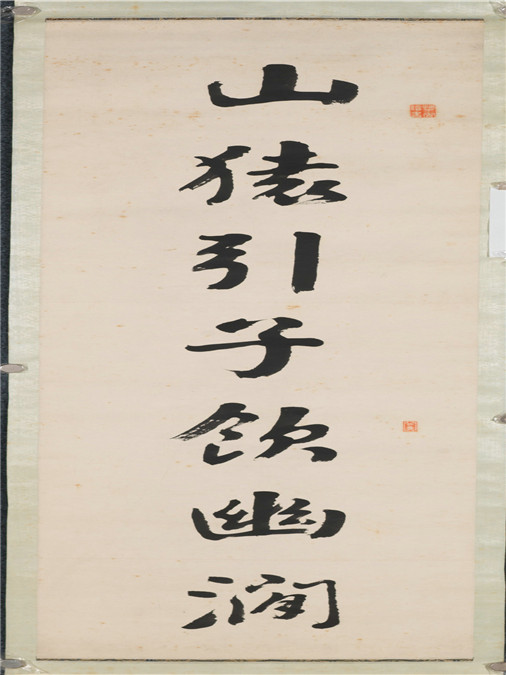 山猿引子飲幽澗